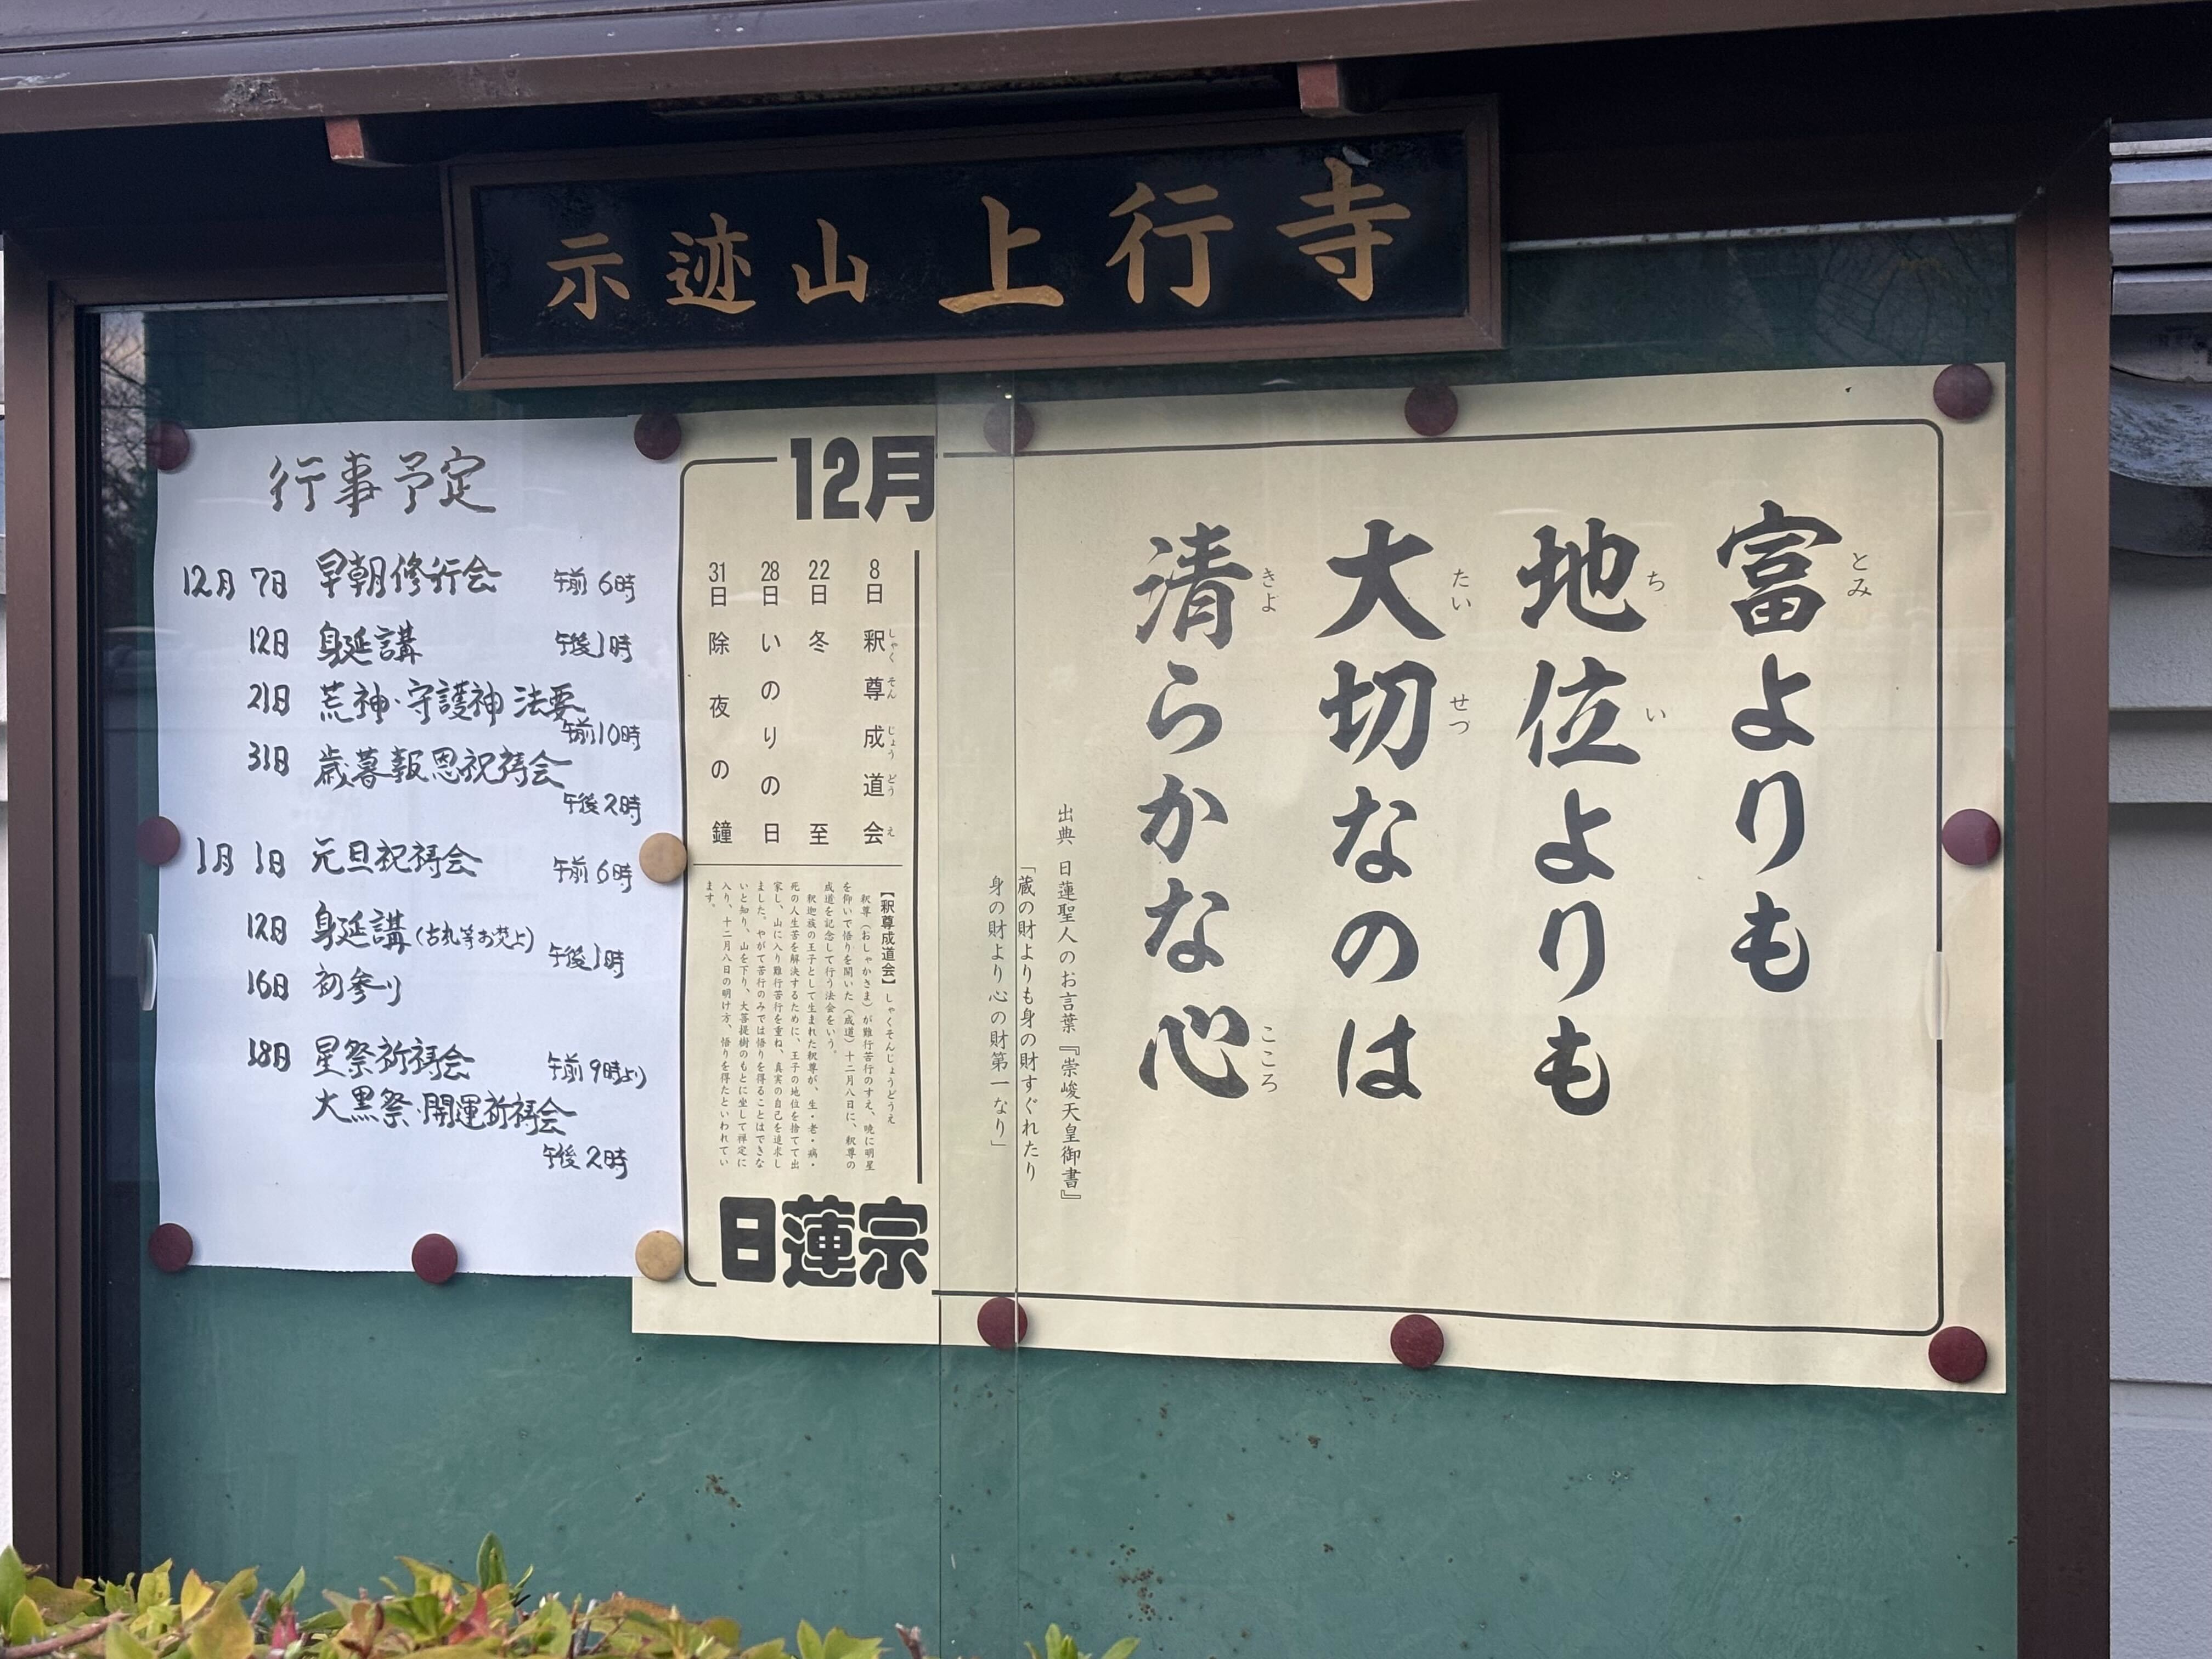 示迹山 上行寺
行事予定
12月 7日 早朝修行会 午前6時
12日 身延講 午後1時
21日 荒神・守護神法要
午前10時
31日 歳暮報恩祝祷会
午後2時
1月 1日 元旦祝祷会 午前6時
12日 身延講(古札等お焚上)
午後1時
16日 初参り
18日 星祭祈祷会 午前9時より
大黒祭・開運祈祷会
午後2時
富よりも
とみ
地位よりも
ちい
大切なのは
たいせつ
清らかな心
きよ こころ
出典 日蓮聖人のお言葉『崇峻天皇御書』
「蔵の財よりも身の財すぐれたり
身の財より心の財第一なり」
12月
8日 釈尊成道会
しゃくそんじょうどうえ
22日 冬至
28日 いのりの日
31日 除夜の鐘
【釈尊成道会】しゃくそんじょうどうえ
釈尊(おしゃかさま)が難行苦行のすえ、暁に明星
を仰いで悟りを開いた(成道)十二月八日に、釈尊の
成道を記念して行う法会をいう。
釈迦族の王子として生まれた釈尊が、生・老・病・
死の人生苦を解決するために、王子の地位を捨てて出
家し、山に入り難行苦行を重ね、真実の自己を追求し
ました。やがて苦行のみでは悟りを得ることはできな
いと知り、山を下り、大菩提樹のもとに坐して禅定に
入り、十二月八日の明け方、悟りを得たといわれてい
ます。
日蓮宗